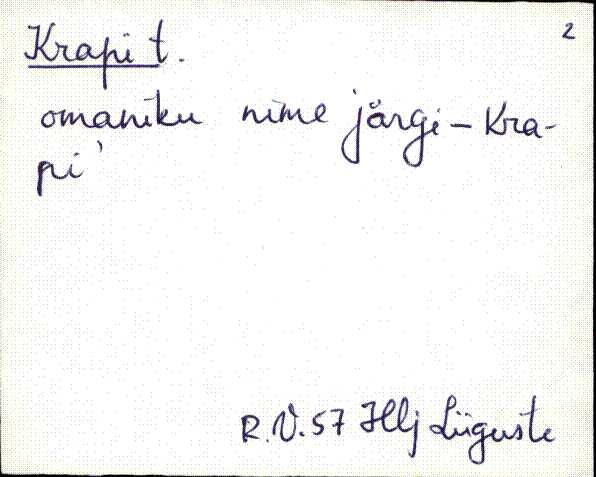 2
Krapi t.
omaniku nime järgi – Kra-
pi'
R.V. 57 Hlj Liiguste